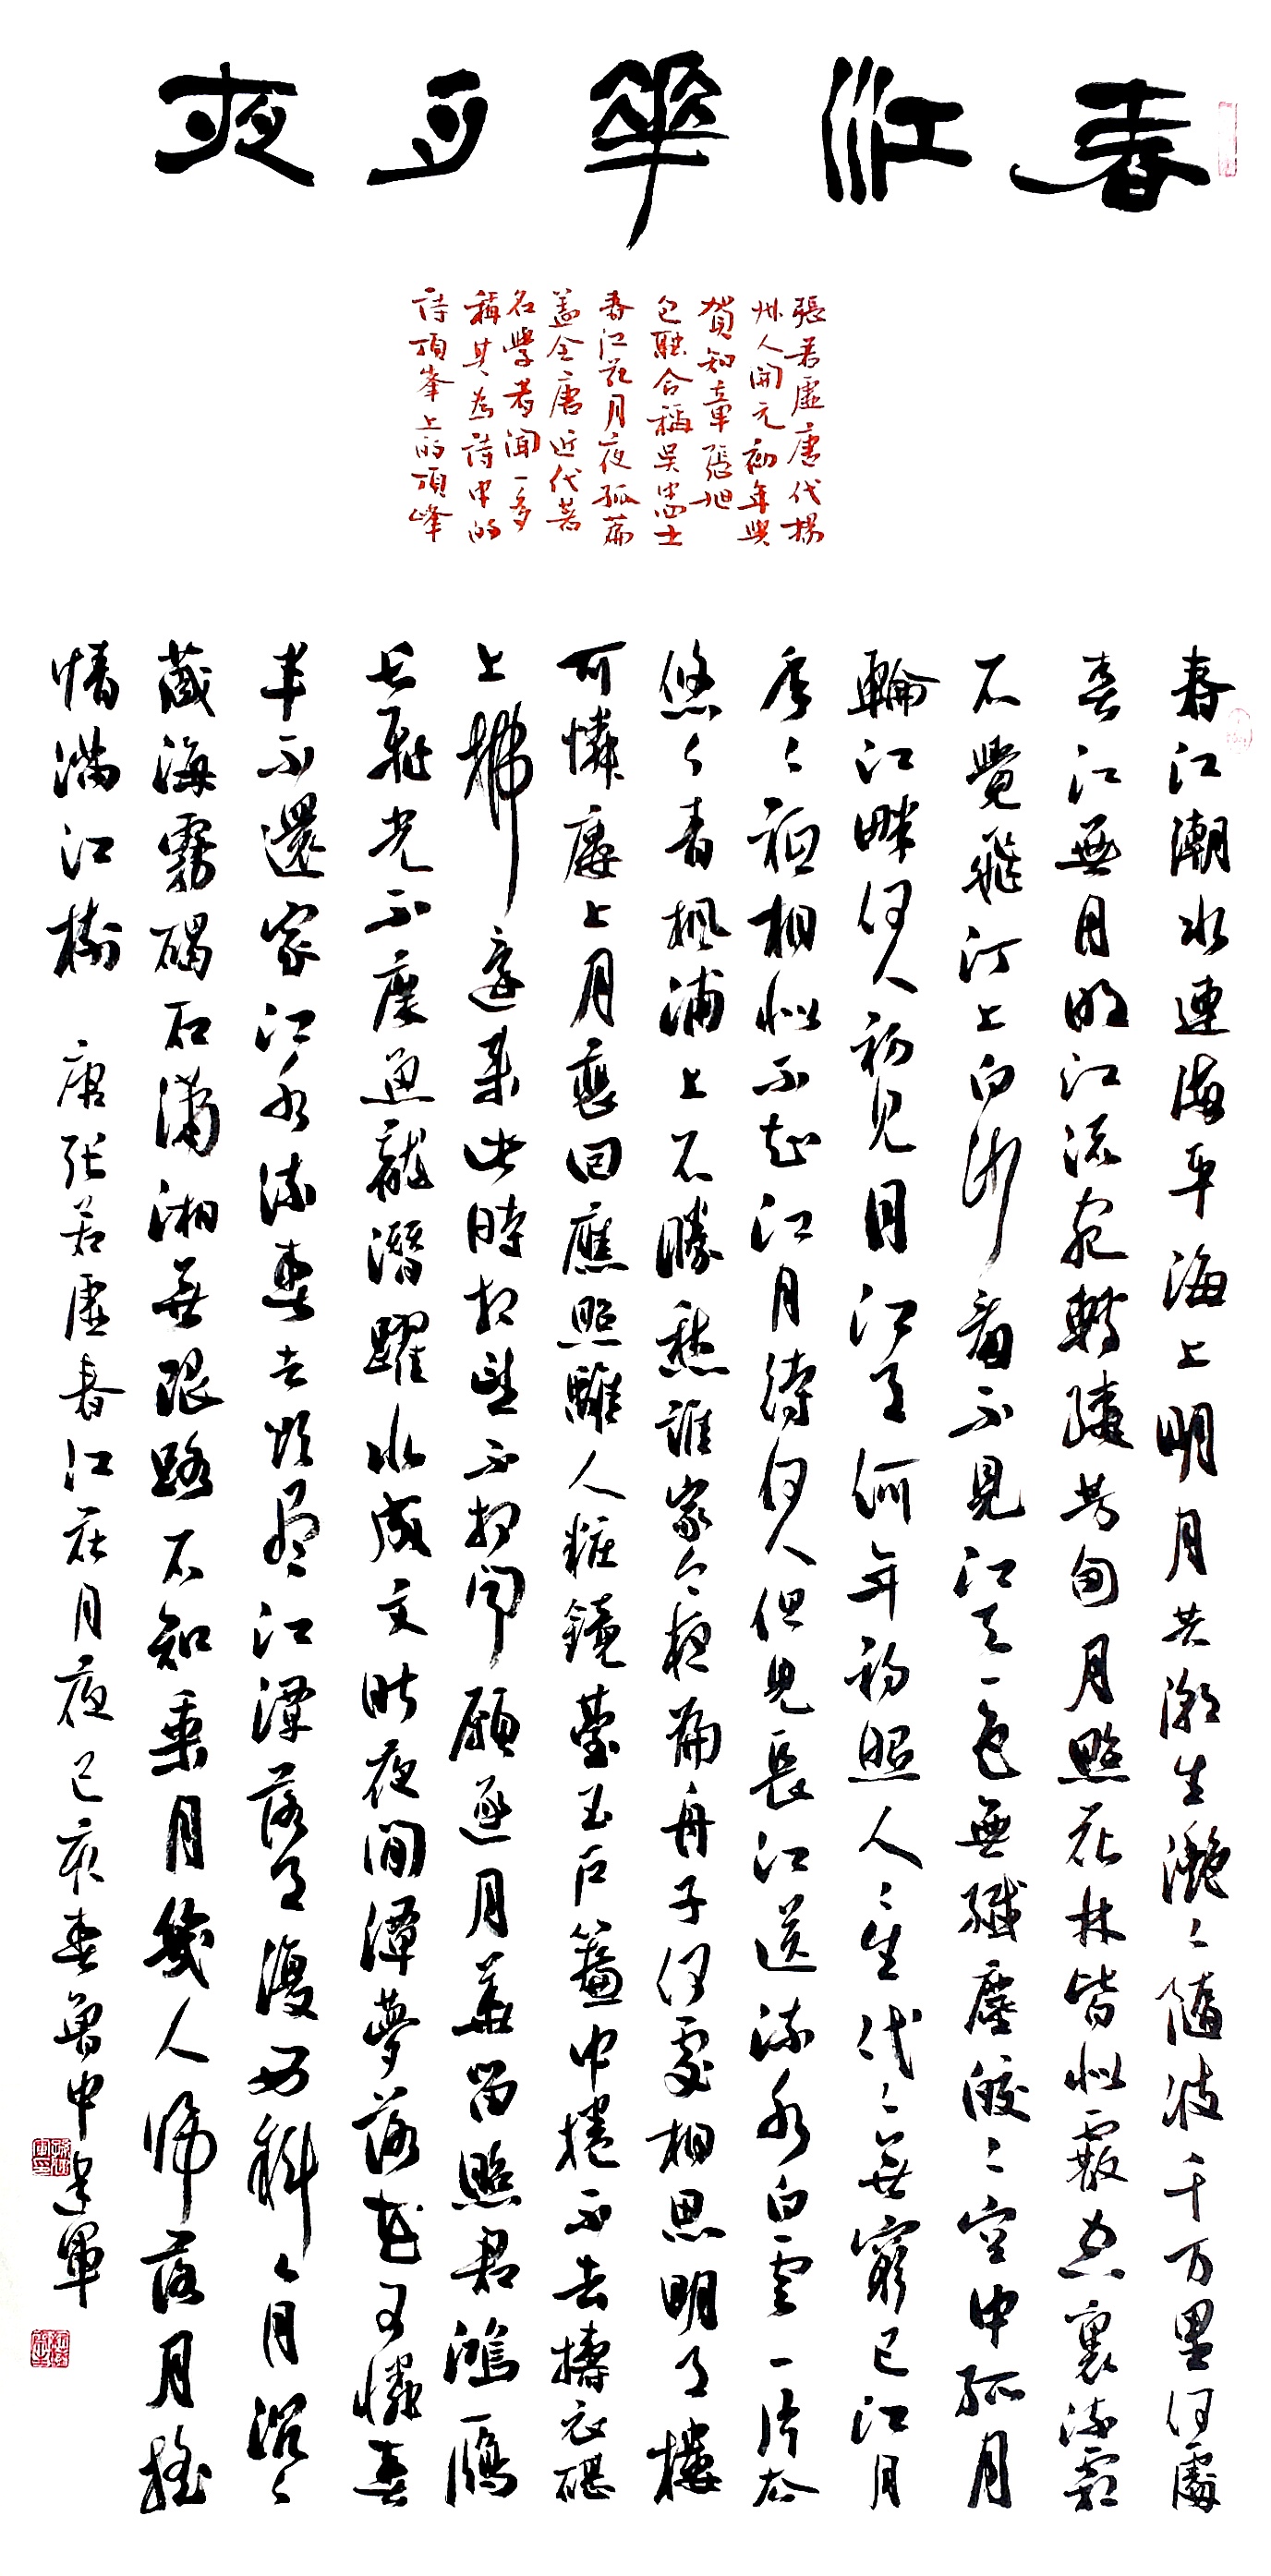 春江華月夜
張若虛唐代揚
州人開元初年與
賀知章張旭
包融合稱吳中四士
春江花月夜孤篇
蓋全唐近代著
名學者聞一多
稱其為詩中的
詩頂峯上的頂峰
春江潮水連海平海上明月共潮生灩〻隨波千万里何處
春江無月明江流宛轉繞芳甸月照花林皆似霰空裏流霜
不覺飛汀上白沙看不見江天一色無纖塵皎〻空中孤月
輪江畔何人初見月江月何年初照人〻生代〻無窮已江月
年〻祇相似不知江月待何人但見長江送流水白雲一片去
悠〻青楓浦上不勝愁誰家今夜扁舟子何處相思明月樓
可憐廔上月裴回應照離人粧鏡臺玉戶簾中捲不去擣衣碪
上拂還來此時相望不相聞願逐月華留照君鴻雁
長飛光不度魚龍潛躍水成文昨夜閒潭夢落花可憐春
半不還家江水流春去欲盡江潭落月復西斜〻月沉〻
藏海霧碣石瀟湘無限路不知乘月幾人歸落月搖
情滿江樹 唐張若虛春江花月夜己亥春魯中建軍